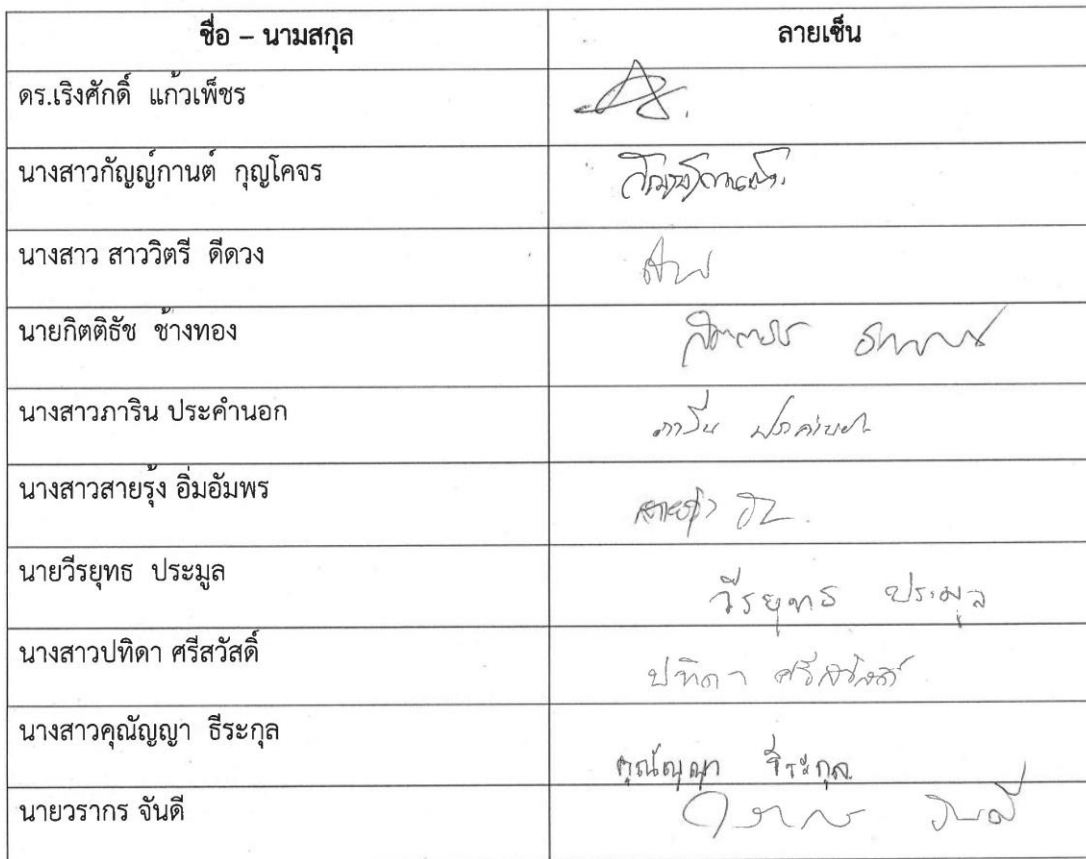 ชื่อ – นามสกุล ลายเซ็น
ดร.เริงศักดิ์ แก้วเพ็ชร
นางสาวกัญญ์กานต์ กุญโคจร กัญญ์กานต์
นางสาว สาววิตรี ดีดวง
นายกิตติธัช ช้างทอง
นางสาวภาริน ประคำนอก ภาริน ประคำนอก
นางสาวสายรุ้ง อิ่มอัมพร สายรุ้ง
นายวีรยุทธ ประมูล วีรยุทธ ประมูล
นางสาวปทิดา ศรีสวัสดิ์ ปทิดา ศรีสวัสดิ์
นางสาวคุณัญญา ธีระกุล คุณัญญา ธีระกุล
นายวรากร จันดี วรากร จันดี